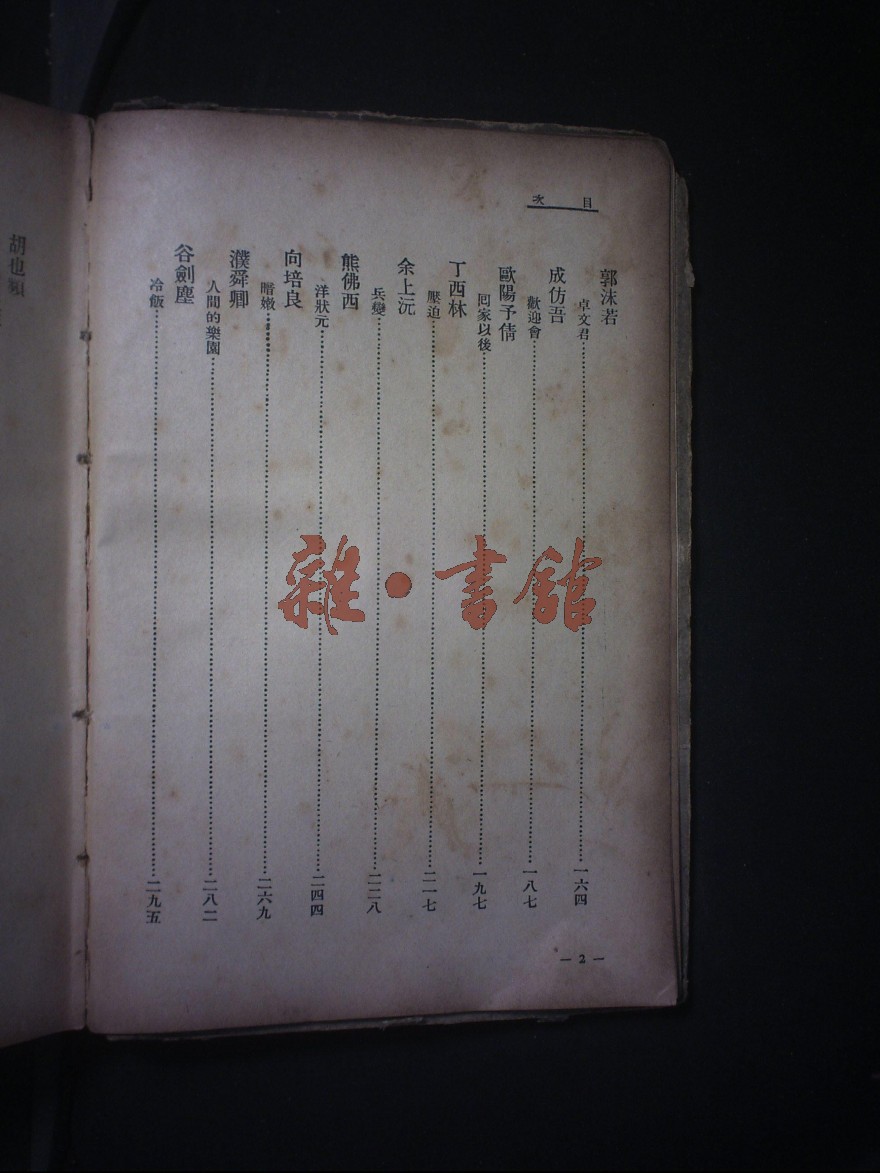 目次
郭沫若
卓文君……一六四
成仿吾
歡迎會……一八七
歐陽予倩
回家以後……一九七
丁西林
壓迫……二一七
余上沅
兵變……二二八
熊佛西
洋狀元……二四四
向培良
暗嫩……二六九
濮舜卿
人間的樂園……二八二
谷劍塵
冷飯……二九五
— 2 —
胡也頻
雜·書館